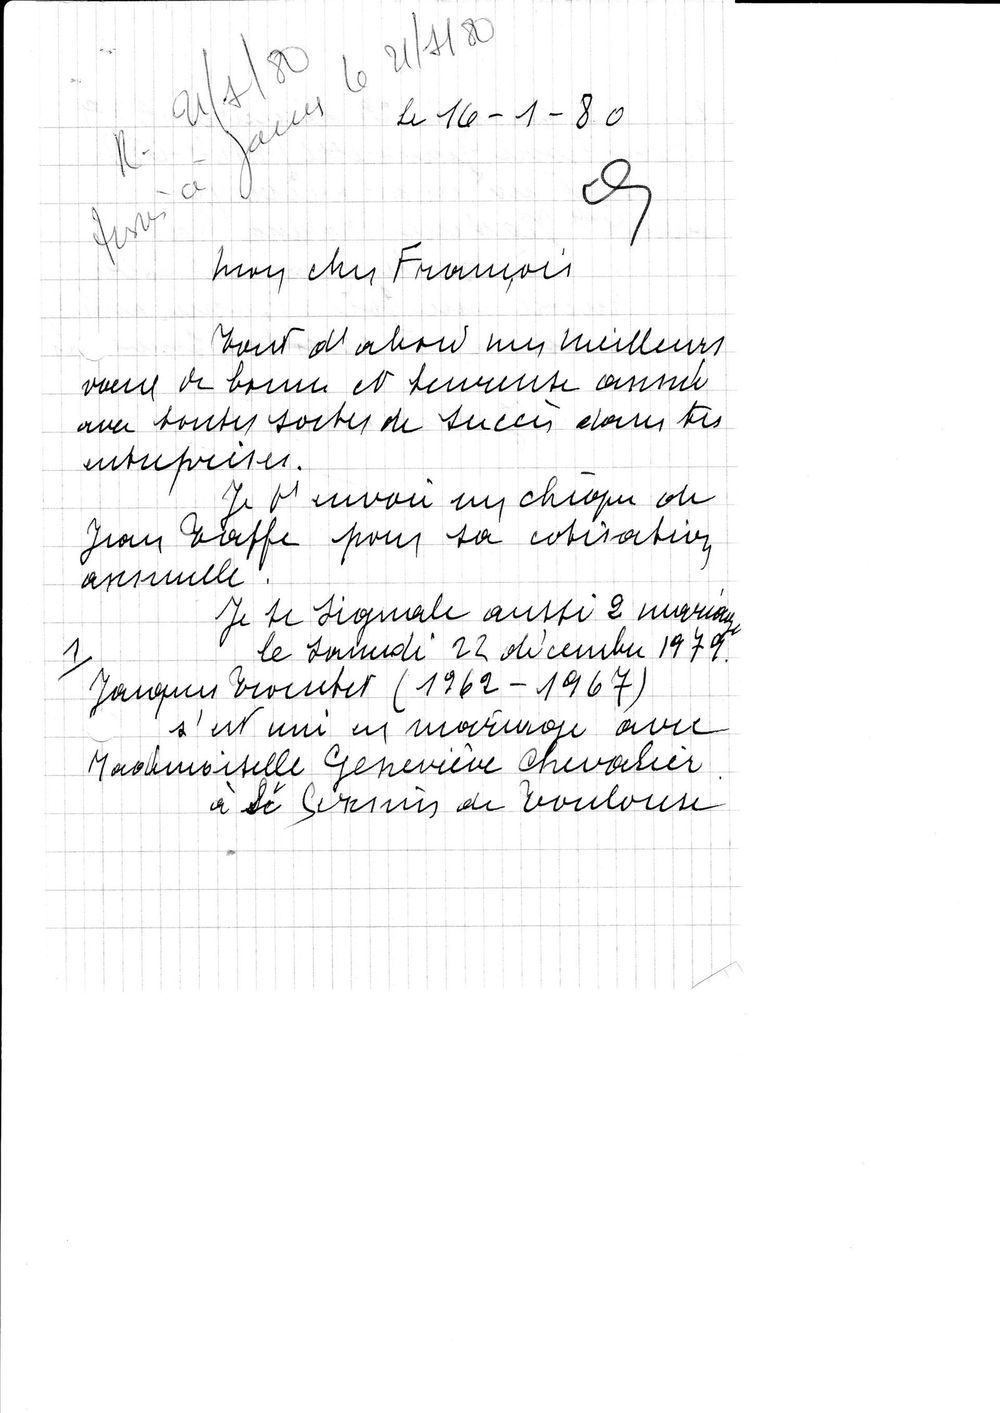 R. 21/1/80
à James le 21/1/80
le 16-1-80
Mon cher François
Tout d'abord mes meilleurs
voeux de bonne et heureuse année
avec toutes sortes de succès dans tes
entreprises.
Je t'envoie un chèque de
Jean Taffe pour sa cotisation
annuelle.
Je te signale aussi 2 mariage
le samedi 22 décembre 1979.
1/
Jacques Troubet (1962-1967)
s'est uni en mariage avec
Mademoiselle Geneviève Chevalier
à St Sernin de Toulouse